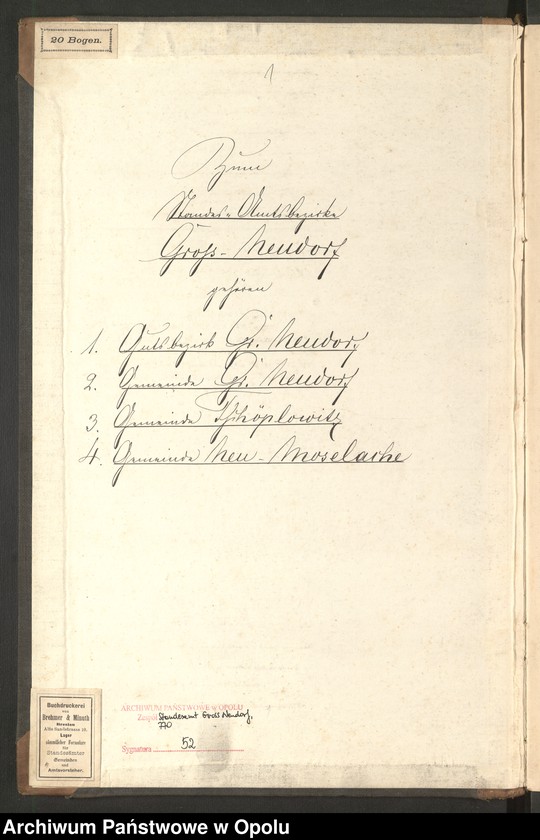 20 Bogen.
1
Zum
Standes-Amtsbezirke
Groß-Neudorf
gehören
1. Gutsbezirk Gr. Neudorf
2. Gemeinde Gr. Neudorf
3. Gemeinde Tschöplowitz
4. Gemeinde Neu-Moselache
Buchdruckerei
von
Brehmer & Minuth
Breslau
Lager
sämmtlicher Formulare
für
Standesämter
Gemeinden
und
Amtsvorsteher.
ARCHIWUM PAŃSTWOWE w OPOLU
Zespół Standesamt Gross Neudorf,
770
Sygnatura 52
Archiwum Państwowe w Opolu